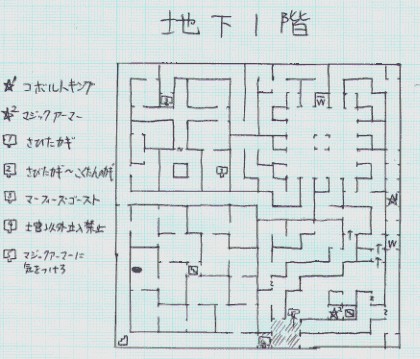 地下1階
★1 コボルトキング
★2 マジックアーマー
1 さびたカギ
2 さびたカギ〜こくたんのカギ
3 マーフィーズゴースト
4 士官以外立入禁止
5 マジックアーマーに
気をつけろ
W
W
★2